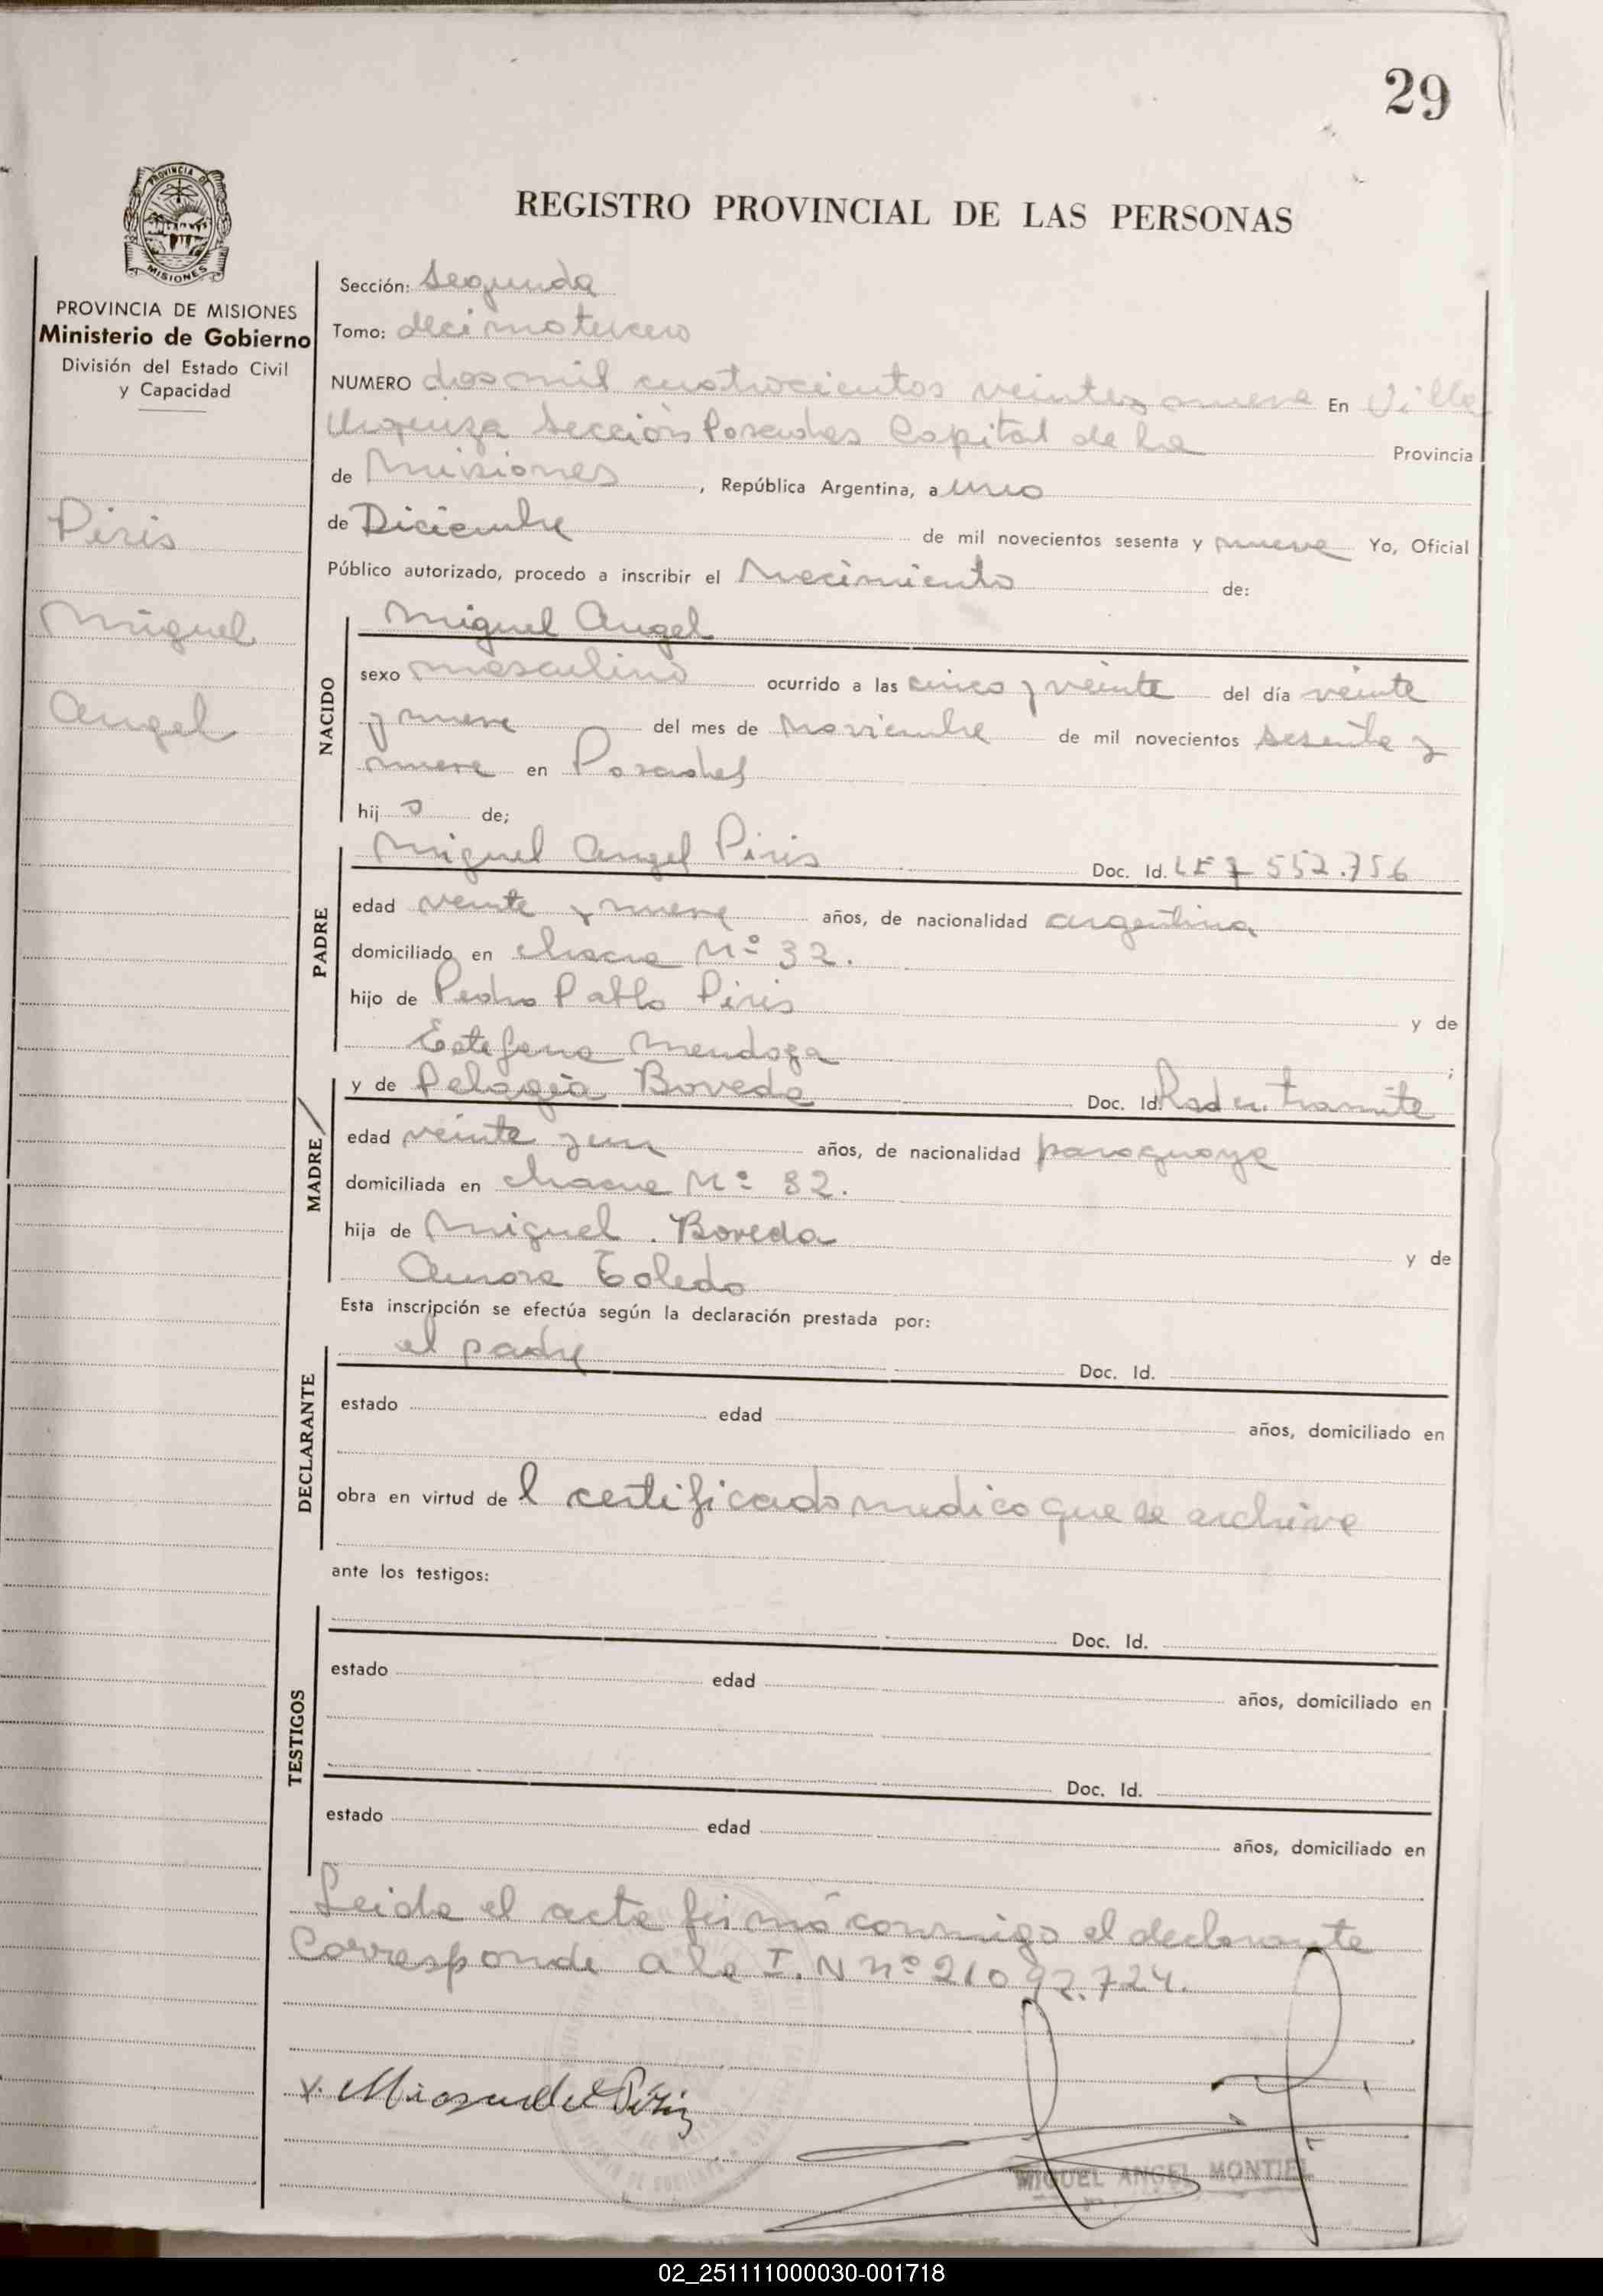 29
PROVINCIA DE
MISIONES
REGISTRO PROVINCIAL DE LAS PERSONAS
PROVINCIA DE MISIONES
Ministerio de Gobierno
División del Estado Civil
y Capacidad
Piris
Miguel
Angel
Sección: Segunda
Tomo: decimotercero
NUMERO dos mil cuatrocientos veinte y nueve En Villa
Urquiza Sección Posadas Capital de la Provincia
de Misiones, República Argentina, a uno
de Diciembre de mil novecientos sesenta y nueve Yo, Oficial
Público autorizado, procedo a inscribir el Nacimiento de:
NACIDO
Miguel Angel
sexo masculino ocurrido a las cinco y veinte del día veinte
y nueve del mes de Noviembre de mil novecientos sesenta y
nueve en Posadas
hij o de;
PADRE
Miguel Angel Piris Doc. Id. LE 7 552.756
edad veinte y nueve años, de nacionalidad argentina
domiciliado en chacra Nº 32.
hijo de Pedro Pablo Piris y de
Estefana Mendoza ;
MADRE
y de Pelagia Boveda Doc. Id. Rad en tramite
edad veinte y un años, de nacionalidad paraguaya
domiciliada en chacra Nº 32.
hija de Miguel . Boveda y de
Aurora Toledo
Esta inscripción se efectúa según la declaración prestada por:
DECLARANTE
el padre Doc. Id.
estado edad años, domiciliado en
obra en virtud de l certificado medico que se archiva
ante los testigos:
TESTIGOS
Doc. Id.
estado edad años, domiciliado en
Doc. Id.
estado edad años, domiciliado en
Leida el acta firmó conmigo el declarante
Corresponde a la I. N nº 21092.724.
MIGUEL ANGEL MONTIEL
02_251111000030-001718